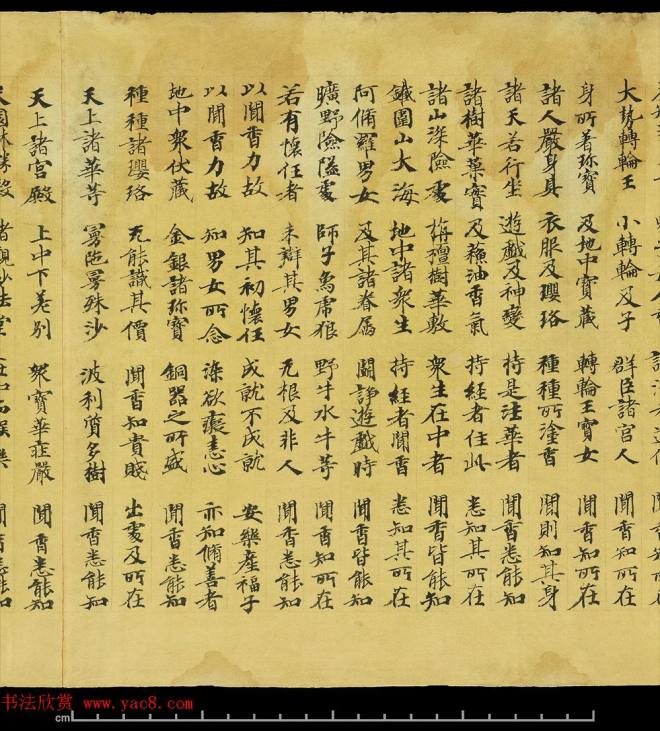 大勢轉輪王 小轉輪及子 群臣諸宮人 聞香知所在
身所著珎寶 及地中寶藏 轉輪王寶女 聞香知所在
諸人嚴身具 衣服及瓔珞 種種所塗香 聞則知其身
諸天若行坐 遊戲及神變 持是法華者 聞香悉能知
諸樹華菓實 及蘓油香氣 持經者住此 悉知其所在
諸山深險處 栴檀樹華敷 衆生在中者 聞香皆能知
鐵圍山大海 地中諸衆生 持經者聞香 悉知其所在
阿脩羅男女 及其諸眷屬 鬪諍遊戲時 聞香皆能知
曠野險隘處 師子鳥虎狼 野牛水牛等 聞香知所在
若有懷任者 未辯其男女 无根及非人 聞香悉能知
以聞香力故 知其初懷任 成就不成就 安樂產福子
以聞香力故 知男女所念 染欲癡恚心 亦知脩善者
地中衆伏藏 金銀諸珎寶 銅器之所盛 聞香悉能知
種種諸瓔珞 无能識其價 聞香知貴賤 出處及所在
天上諸華等 曼陁曼殊沙 波利質多樹 聞香悉能知
天上諸宮殿 上中下差別 衆寶華莊嚴 聞香悉能知
书法欣赏 www.yac8.com
cm